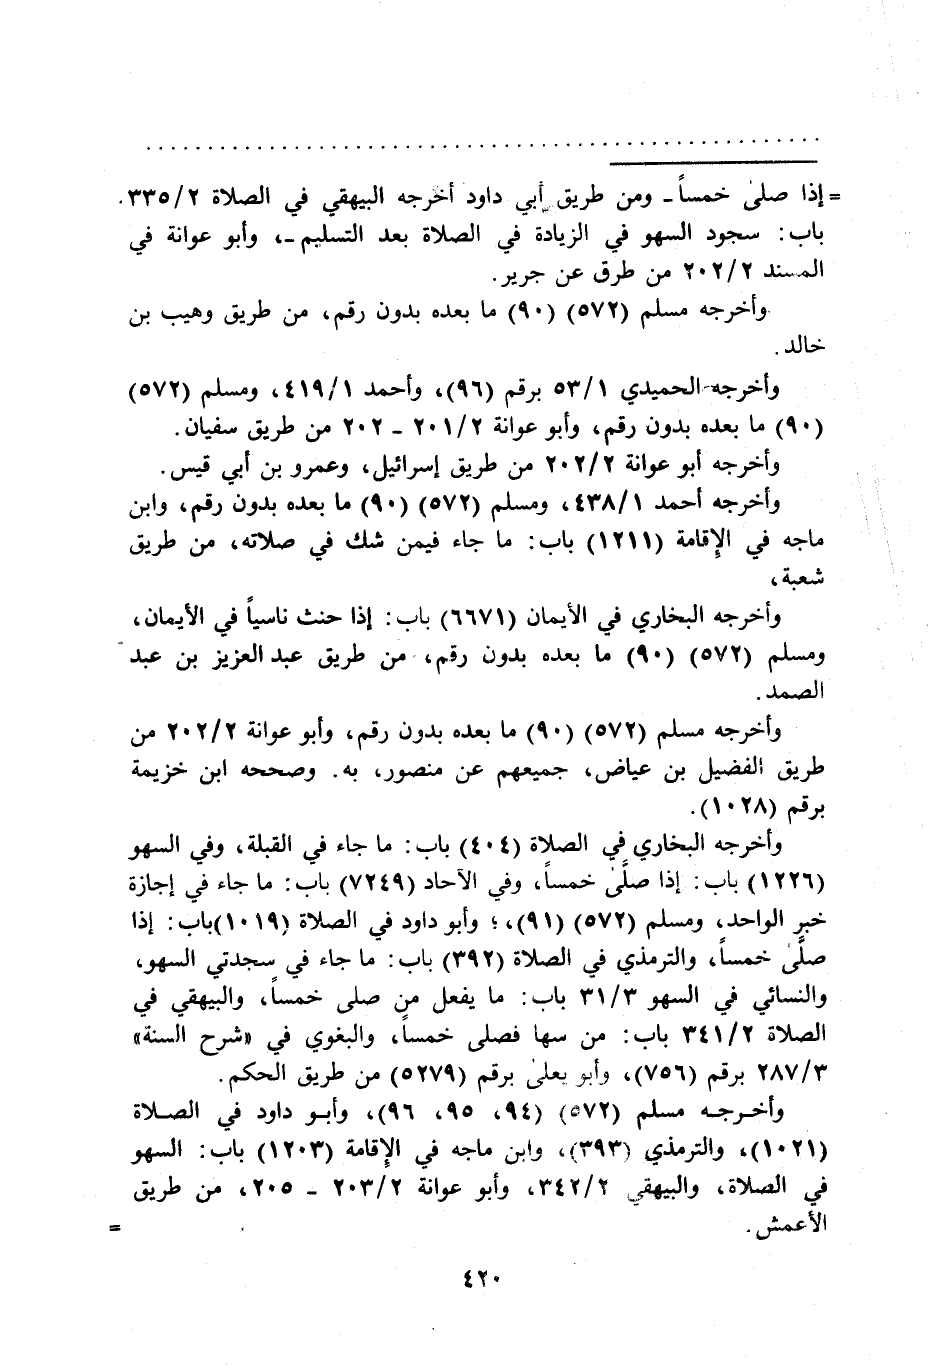 = إذا صلىٰ خمساً ـ ومن طريق أبي داود أخرجه البيهقي في الصلاة ٣٣٥/٢.
باب: سجود السهو في الزيادة في الصلاة بعد التسليم ـ، وأبو عوانة في
المسند ٢٠٢/٢ من طرق عن جرير.
وأخرجه مسلم (٥٧٢) (٩٠) ما بعده بدون رقم، من طريق وهيب بن
خالد.
وأخرجه الحميدي ٥٣/١ برقم (٩٦)، وأحمد ٤١٩/١، ومسلم (٥٧٢)
(٩٠) ما بعده بدون رقم، وأبو عوانة ٢٠١/٢ ـ ٢٠٢ من طريق سفيان.
وأخرجه أبو عوانة ٢٠٢/٢ من طريق إسرائيل، وعمرو بن أبي قيس.
وأخرجه أحمد ٤٣٨/١، ومسلم (٥٧٢) (٩٠) ما بعده بدون رقم، وابن
ماجه في الإقامة (١٢١١) باب: ما جاء فيمن شك في صلاته، من طريق
شعبة،
وأخرجه البخاري في الأيمان (٦٦٧١) باب: إذا حنث ناسياً في الأيمان،
ومسلم (٥٧٢) (٩٠) ما بعده بدون رقم، من طريق عبد العزيز بن عبد
الصمد.
وأخرجه مسلم (٥٧٢) (٩٠) ما بعده بدون رقم، وأبو عوانة ٢٠٢/٢ من
طريق الفضيل بن عياض، جميعهم عن منصور، به. وصححه ابن خزيمة
برقم (١٠٢٨).
وأخرجه البخاري في الصلاة (٤٠٤) باب: ما جاء في القبلة، وفي السهو
(١٢٢٦) باب: إذا صلَّىٰ خمساً، وفي الآحاد (٧٢٤٩) باب: ما جاء في إجازة
خبر الواحد، ومسلم (٥٧٢) (٩١)،؛ وأبو داود في الصلاة (١٠١٩)باب: إذا
صلَّىٰ خمساً، والترمذي في الصلاة (٣٩٢) باب: ما جاء في سجدتي السهو،
والنسائي في السهو ٣١/٣ باب: ما يفعل من صلى خمساً، والبيهقي في
الصلاة ٣٤١/٢ باب: من سها فصلى خمساً، والبغوي في «شرح السنة»
٢٨٧/٣ برقم (٧٥٦)، وأبو يعلىٰ برقم (٥٢٧٩) من طريق الحكم.
وأخرجه مسلم (٥٧٢) (٩٤، ٩٥، ٩٦)، وأبو داود في الصلاة
(١٠٢١)، والترمذي (٣٩٣)، وابن ماجه في الإقامة (١٢٠٣) باب: السهو
في الصلاة، والبيهقي ٣٤٢/٢، وأبو عوانة ٢٠٣/٢ ـ ٢٠٥، من طريق
الأعمش. =
٤٢٠